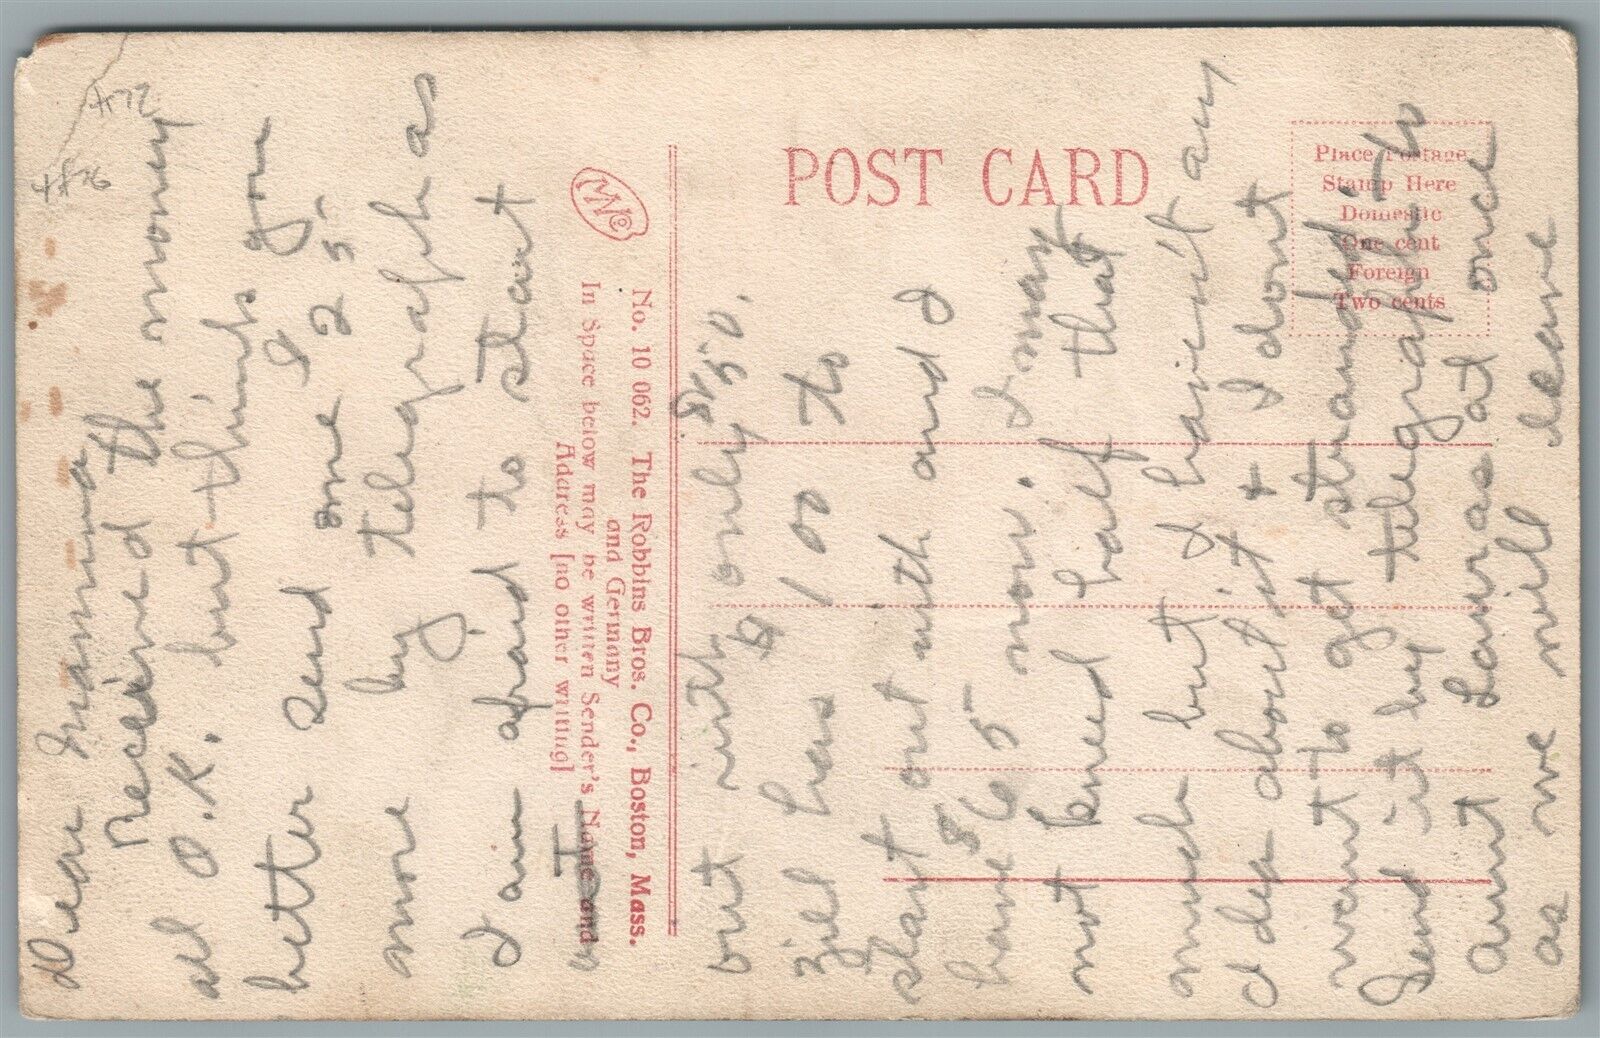 Dear Mamma
Received the money
all O.K. but think you
better send me $25
more by telegraph as
I am afraid to start
out with only $50.
Ziel has $100 to
start out with and I
have $65 now. I may
not kneed half that
much but I haven't any
idea about it + I dont
want to get stranded.
Send it by telegraph to
aunt Lauras at once
as we will leave
POST CARD
Place Postage
Stamp Here
Domestic
One cent
Foreign
Two cents
No. 10 062. The Robbins Bros. Co., Boston, Mass.
and Germany
In Space below may be written Sender's Name and
Address [no other writing]